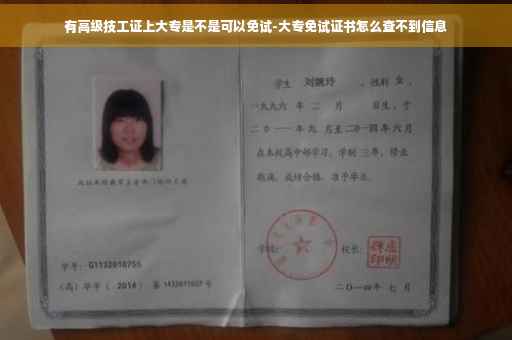 有高级技工证上大专是不是可以免试-大专免试证书怎么查不到信息
学生 刘婉玲 ，性别 女，
一九九六 年 二 月 日生，于
二〇一一年九 月至二〇一四年六月
在本校高中部学习，学制 三年，修业
期满，成绩合格，准予毕业。
学号：G1132010755
学校： 校长：
（高）毕字（ 2014 ）第 1432011027 号
二〇一四年 七 月